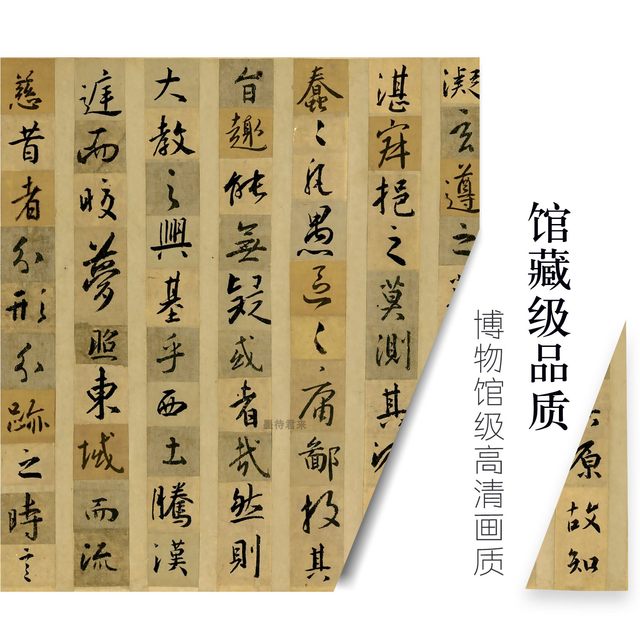 馆藏级品质
博物馆级高清画质
凝玄遵之
湛寂挹之莫測其
蠢〻凡愚區〻庸鄙投其
旨趣能無疑或者哉然則
大教之興基乎西土騰漢
庭而晈夢照東域而流
慈昔者分形分跡之時言
原故知
墨待君来